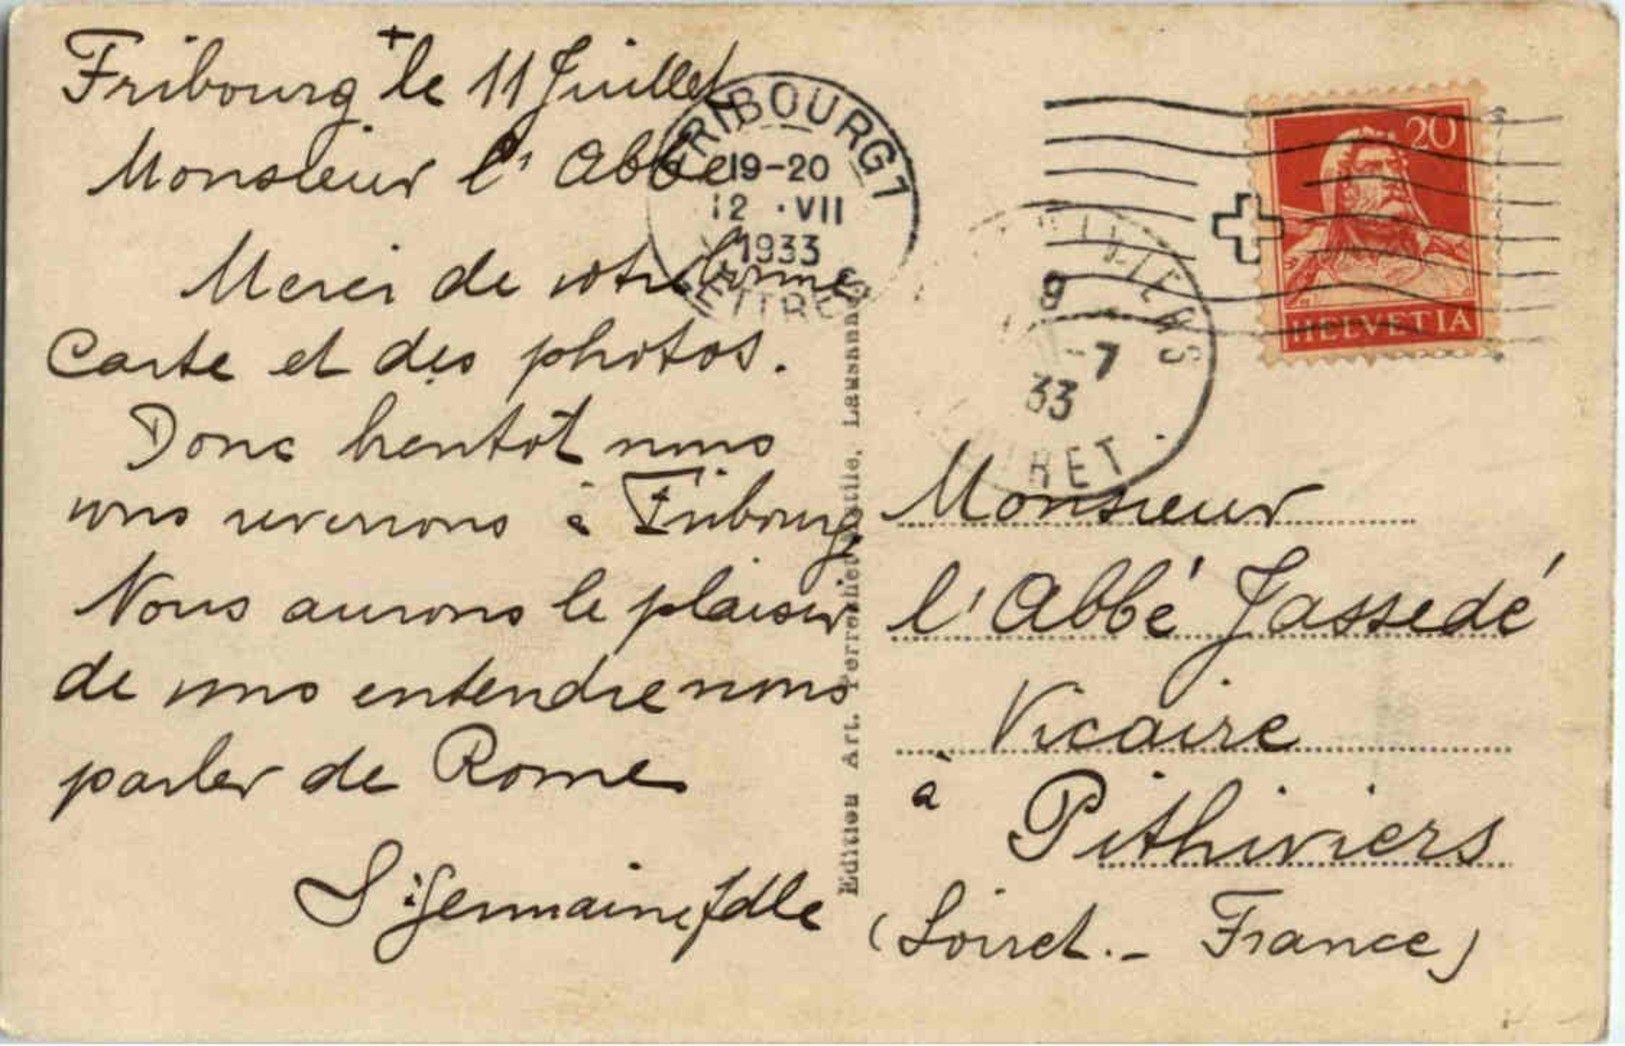 +
Fribourg le 11 Juillet
Monsieur l'Abbé
Merci de votre bonne
Carte et des photos.
Donc bientôt nous
vous reverrons à Fribourg,
Nous aurons le plaisir
de vous entendre nous
parler de Rome
Sr Germaine
FRIBOURG 1
19-20
12 · VII
1933
LETTRES
9
-7
33
20
HELVETIA
Edition Art. Perrochet Lausanne
Monsieur
l'Abbé Jassedé
Vicaire
à Pithiviers
(Loiret.- France)